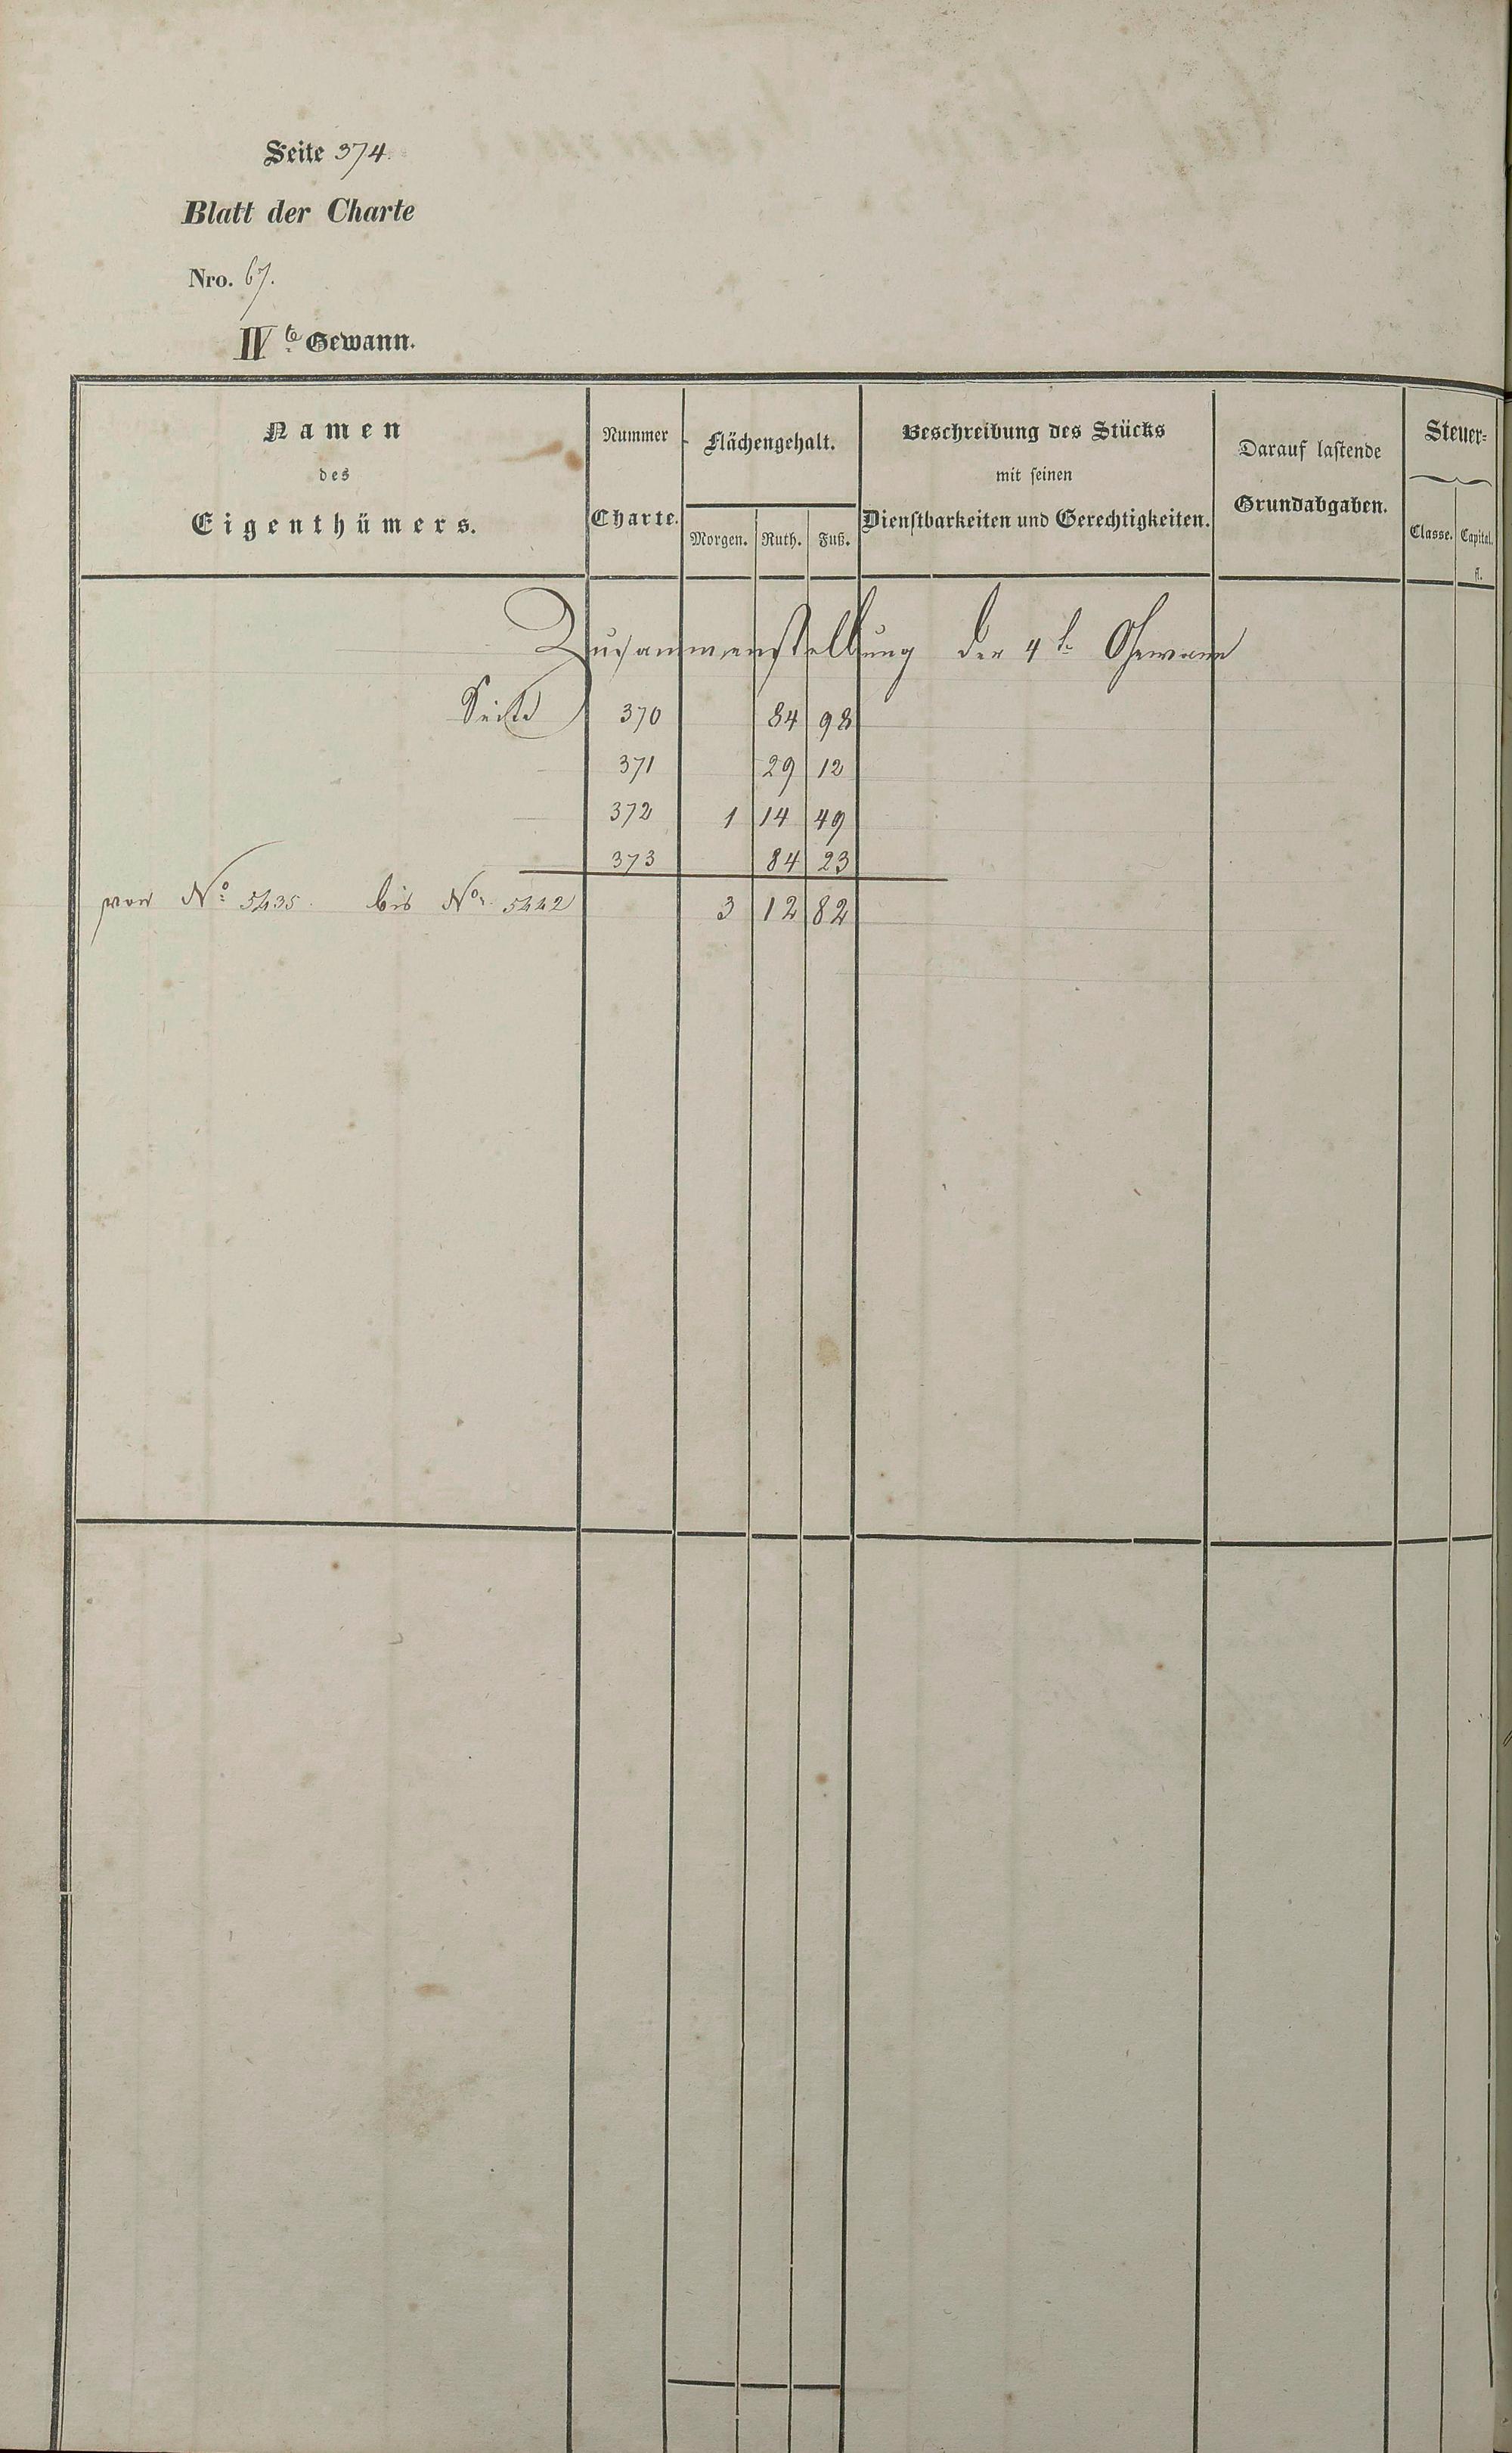 Seite 374.
Blatt der Charte
Nro. 67.
IVte Gewann.
Namen
des
Eigenthümers.
Nummer
Charte.
Flächengehalt.
Morgen. Ruth. Fuß.
Beschreibung des Stücks
mit seinen
Dienstbarkeiten und Gerechtigkeiten.
Darauf lastende
Grundabgaben.
Steuer=
Classe. Capital.
fl.
Zusammenstellung der 4te Gewann
Seite 370 84 98
371 29 12
372 1 14 49
373 84 23
von No. 5435. bis No. 5442 3 12 82